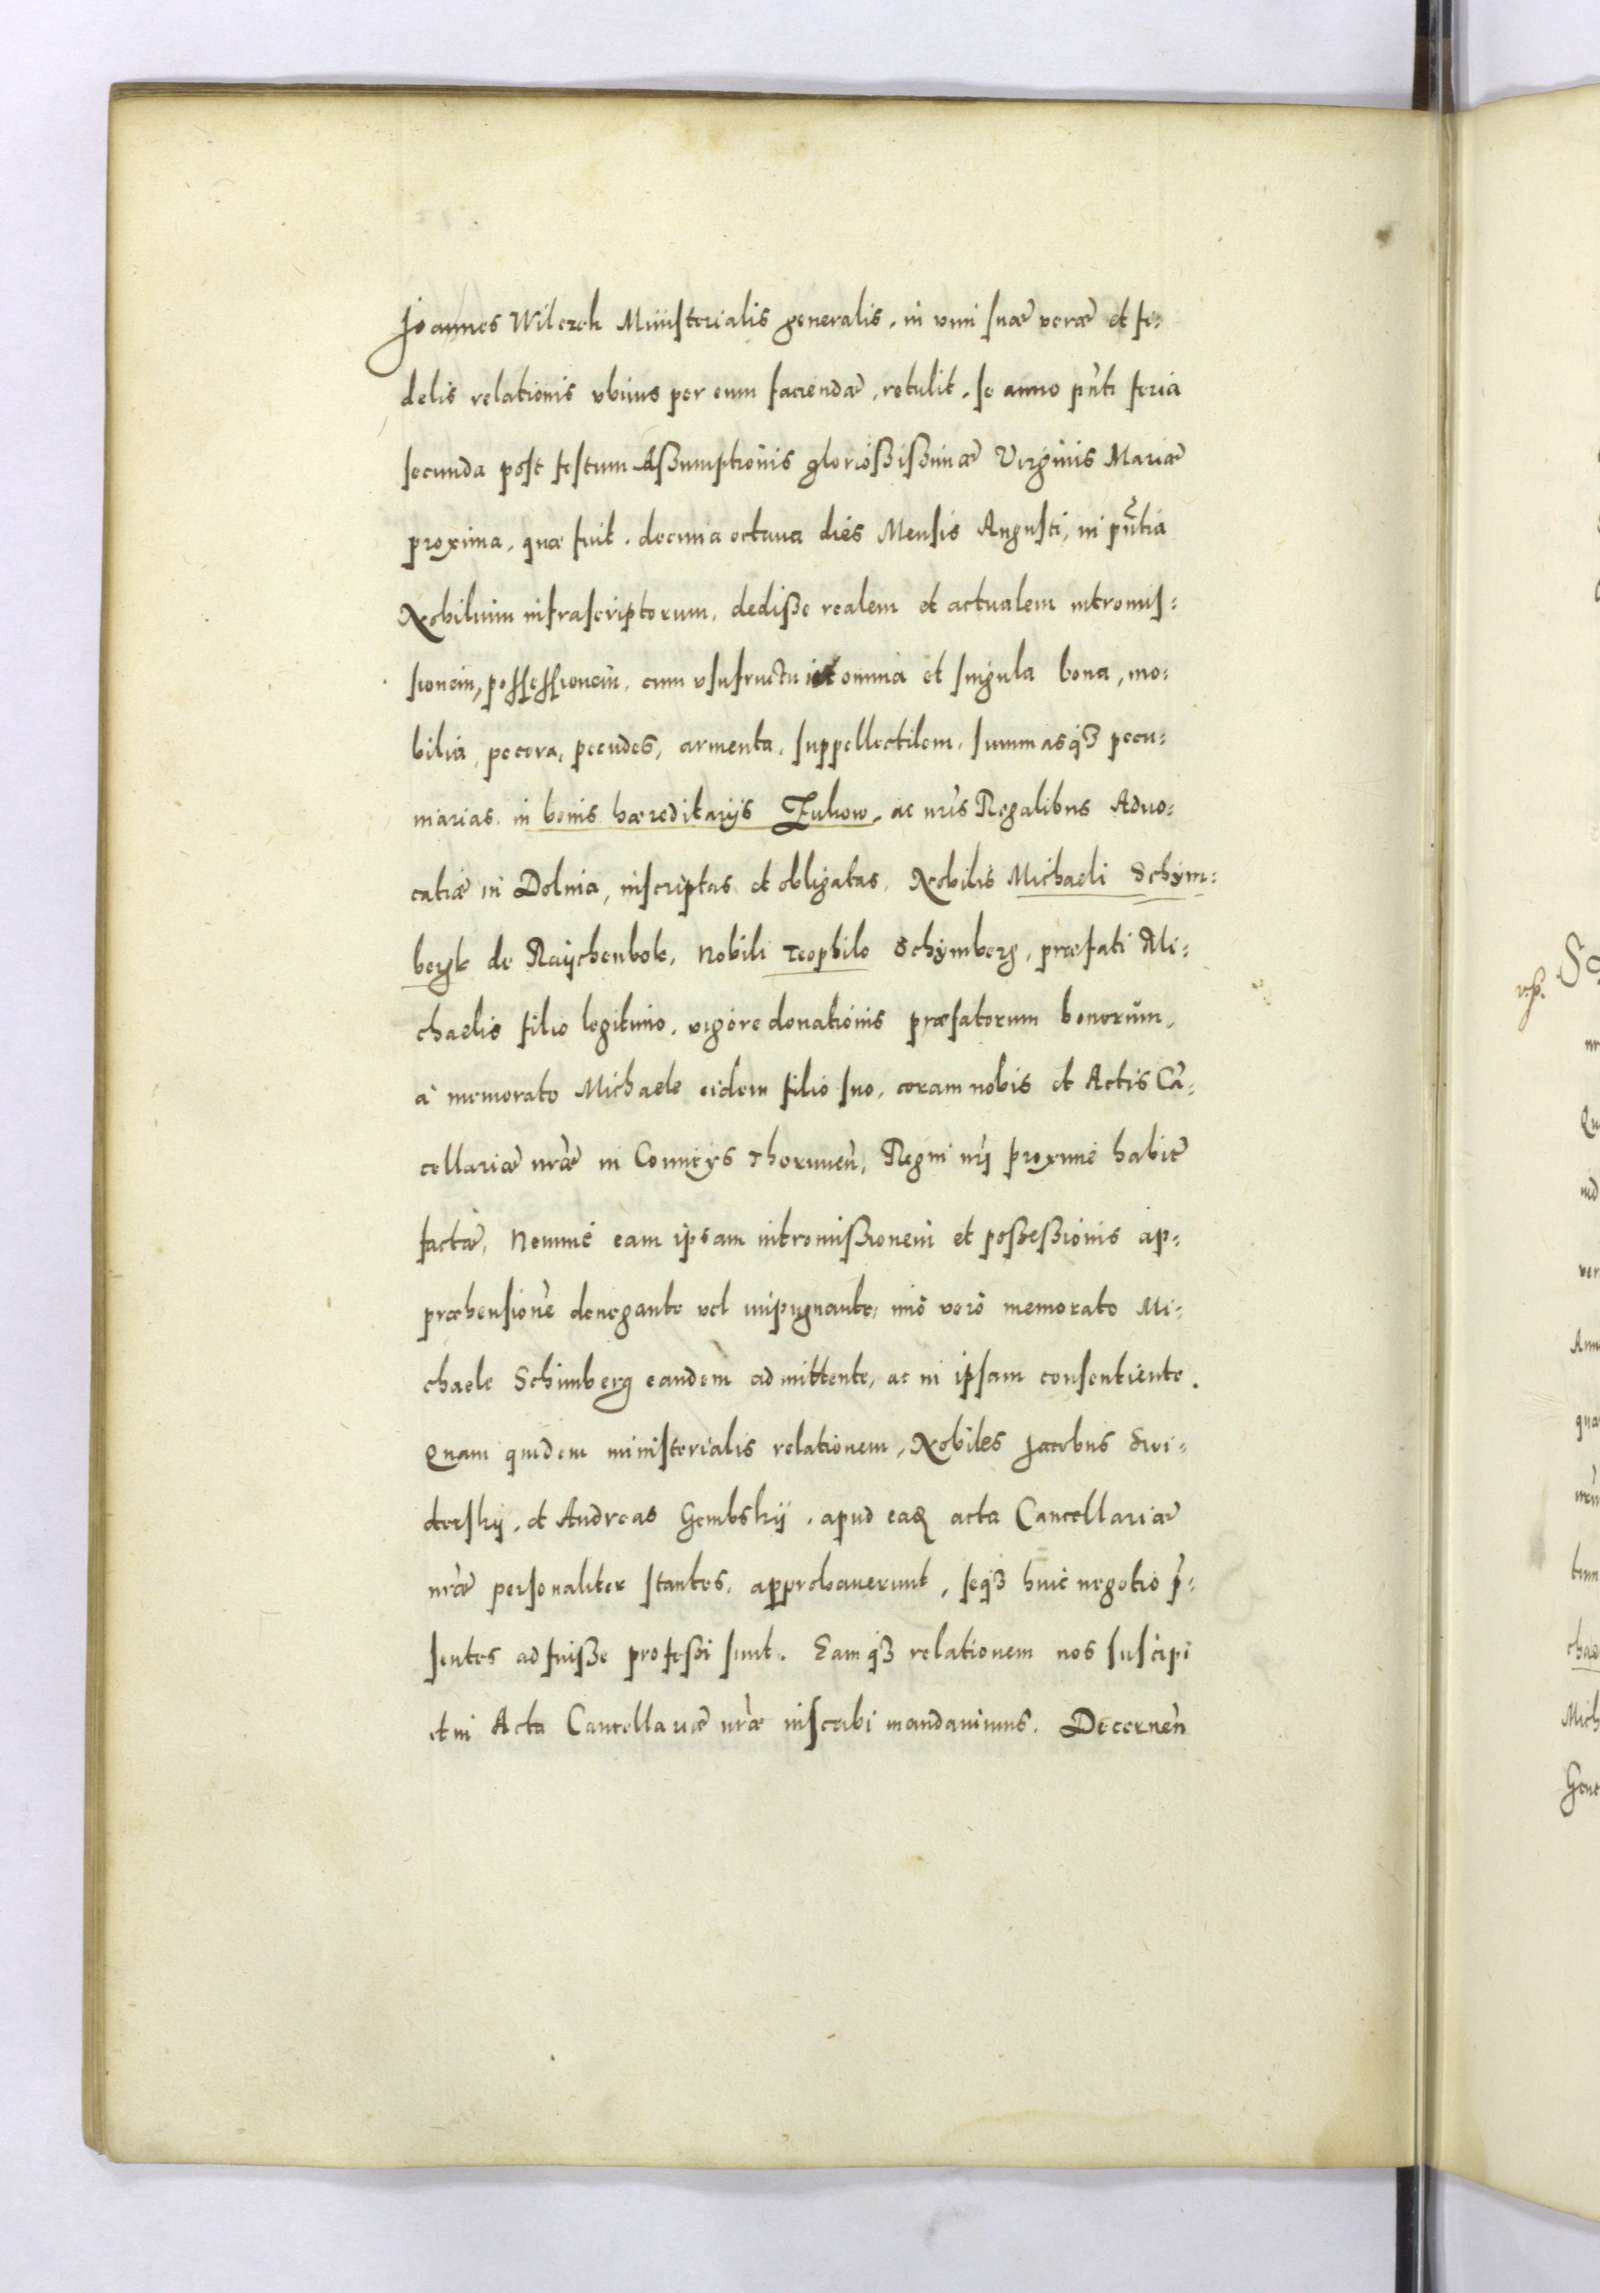 Joannes Wilczek Ministerialis generalis, in vim suæ veræ et fi-
delis relationis vbiuis per eum faciendæ, retulit, se anno pñti feria
secunda post festum Aßumptionis glorioßißimæ Virginis Mariæ
proxima, quæ fuit decima octaua dies Mensis Augusti, in pñtia
Nobilium infrascriptorum, dediße realem et actualem intromis-
sionem, possessionem, cum vsufructu in omnia et singula bona, mo-
bilia, pecora, pecudes, armenta, suppellectilem, summasq3 pecu-
niarias in bonis hæreditarijs Zukow, ac nris Regalibus Aduo-
catiæ in Dolnia, inscriptas et obligatas, Nobilis Michaeli Schym-
bergk de Raÿchenbok, Nobili Teophilo Schÿmberg, præfati Mi-
chaelis filio legitimo, vigore donationis præfatorum bonorum,
à memorato Michaele eidem filio suo, coram nobis et Actis Cā-
cellariæ nræ in Comitijs Thorunen̄, Regni nri proxime habitæ
factæ, Nemine eam ipsam intromißionem et poßeßionis ap-
præhensionē denegante vel impugnante, imò verò memorato Mi-
chaele Schimberg eandem admittente, ac in ipsam consentiente.
Quam quidem ministerialis relationem, Nobiles Jacobus Swi-
derskij, et Andreas Gembskij, apud eaq acta Cancellariæ
nræ personaliter stantes, approbauerunt, seq3 huic negotio p̄-
sentes adfuiße profeßi sunt. Eamq3 relationem nos suscipi
et in Acta Cancellariæ nræ inscribi mandauimus. Decernen̄